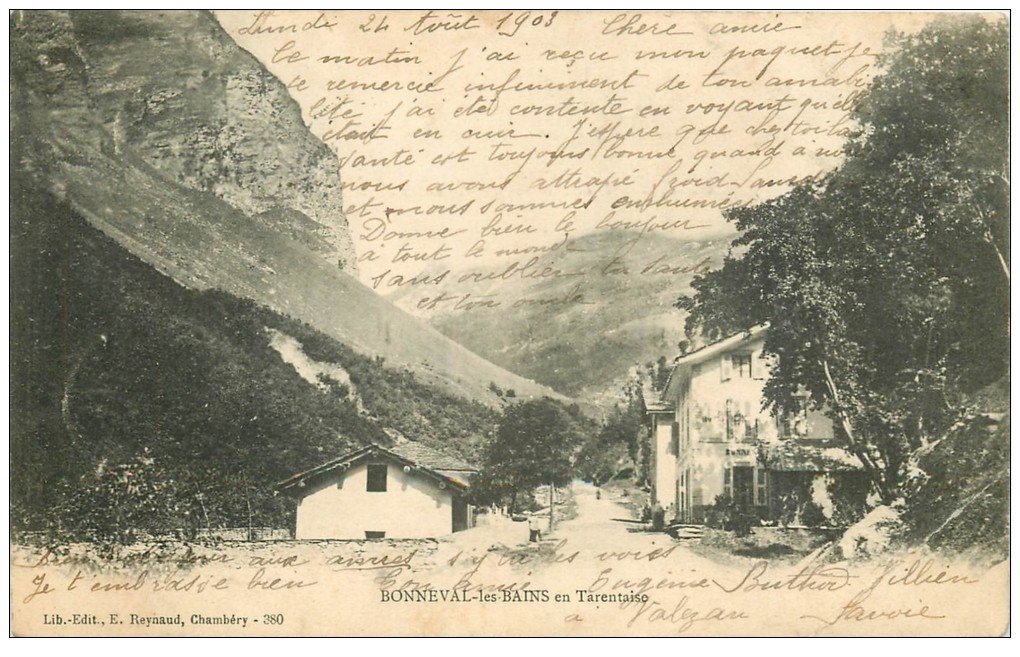 Lundi 24 Août 1903 Chère amie
Ce matin j'ai reçu mon paquet je
te remercie infiniment de ton amabi
lité j'ai été contente en voyant qu'elle
était en cuir. J'espère que chez toi la
santé est toujours bonne quand à nous
nous avons attrapé froid
et nous sommes enrhumées
Donne bien le bonjour
a tout le monde
sans oublier ta tante
et ton oncle
Bien le bonjour aux si tu les vois
Je t'embrasse bien Ton amie Eugénie Villien
BONNEVAL-les-BAINS en Tarentaise
a Valezan Savoie
Lib.-Edit., E. Reynaud, Chambéry - 380